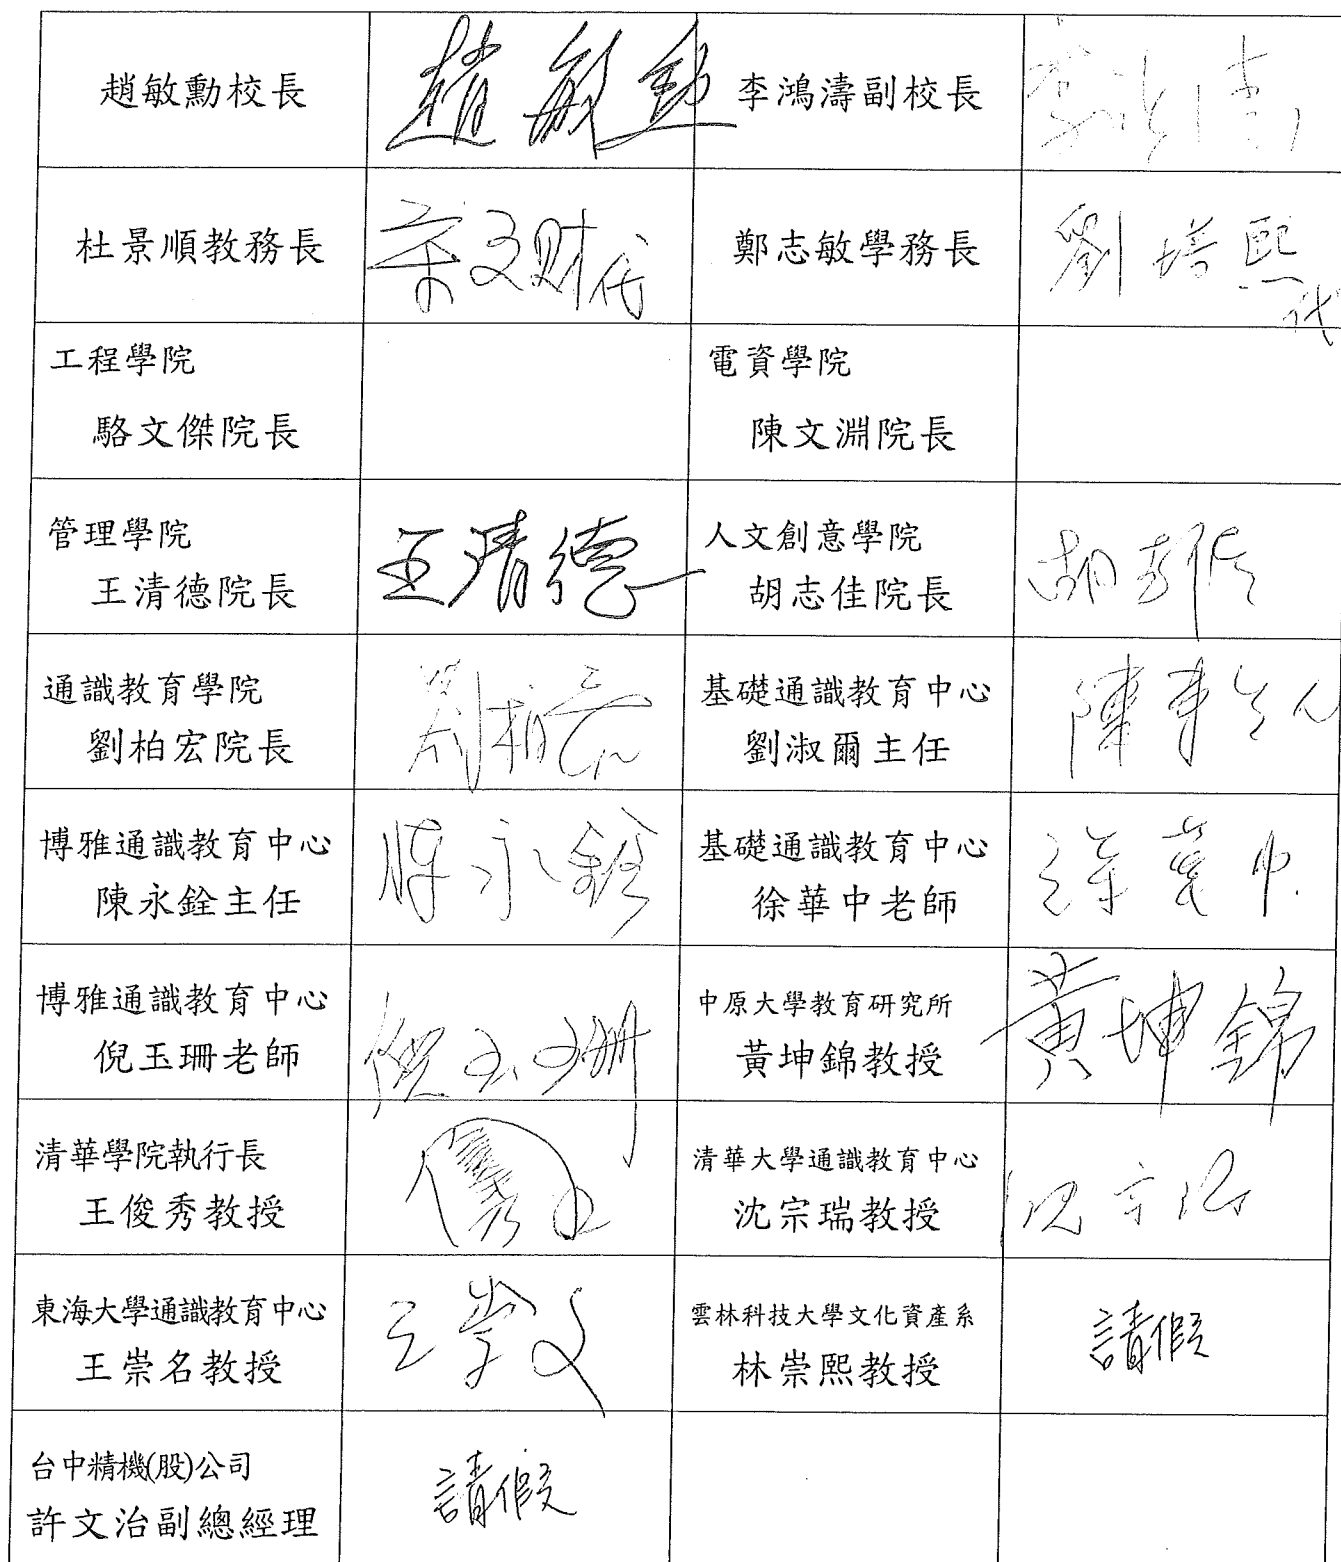 趙敏勳校長
趙敏勳
李鴻濤副校長
杜景順教務長
鄭志敏學務長
劉培熙
代
工程學院
駱文傑院長
電資學院
陳文淵院長
管理學院
王清德院長
王清德
人文創意學院
胡志佳院長
胡志佳
通識教育學院
劉柏宏院長
劉柏宏
基礎通識教育中心
劉淑爾主任
博雅通識教育中心
陳永銓主任
陳永銓
基礎通識教育中心
徐華中老師
徐華中
博雅通識教育中心
倪玉珊老師
倪玉珊
中原大學教育研究所
黃坤錦教授
黃坤錦
清華學院執行長
王俊秀教授
清華大學通識教育中心
沈宗瑞教授
沈宗瑞
東海大學通識教育中心
王崇名教授
雲林科技大學文化資產系
林崇熙教授
請假
台中精機(股)公司
許文治副總經理
請假